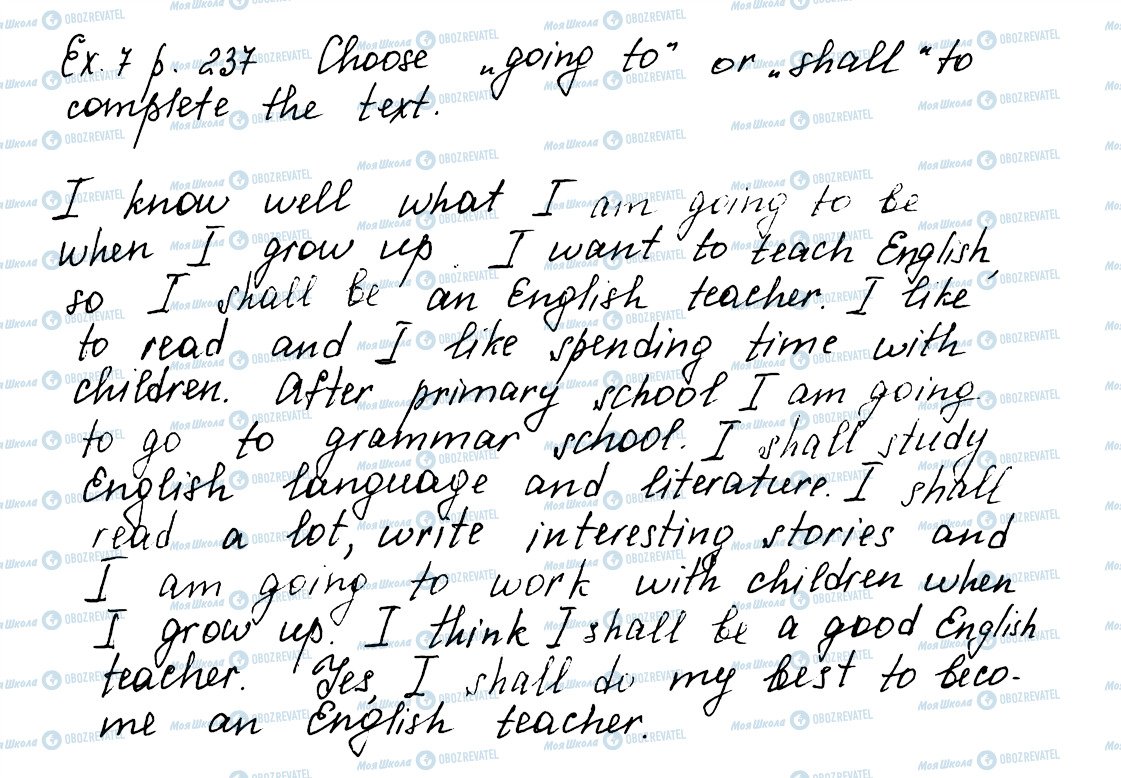 Ex. 7 p. 237 Choose „going to" or „shall" to
complete the text.
I know well what I am going to be
when I grow up. I want to teach English,
so I shall be an English teacher. I like
to read and I like spending time with
children. After primary school I am going
to go to grammar school. I shall study
English language and literature. I shall
read a lot, write interesting stories and
I am going to work with children when
I grow up. I think I shall be a good English
teacher. Yes, I shall do my best to beco-
me an English teacher.